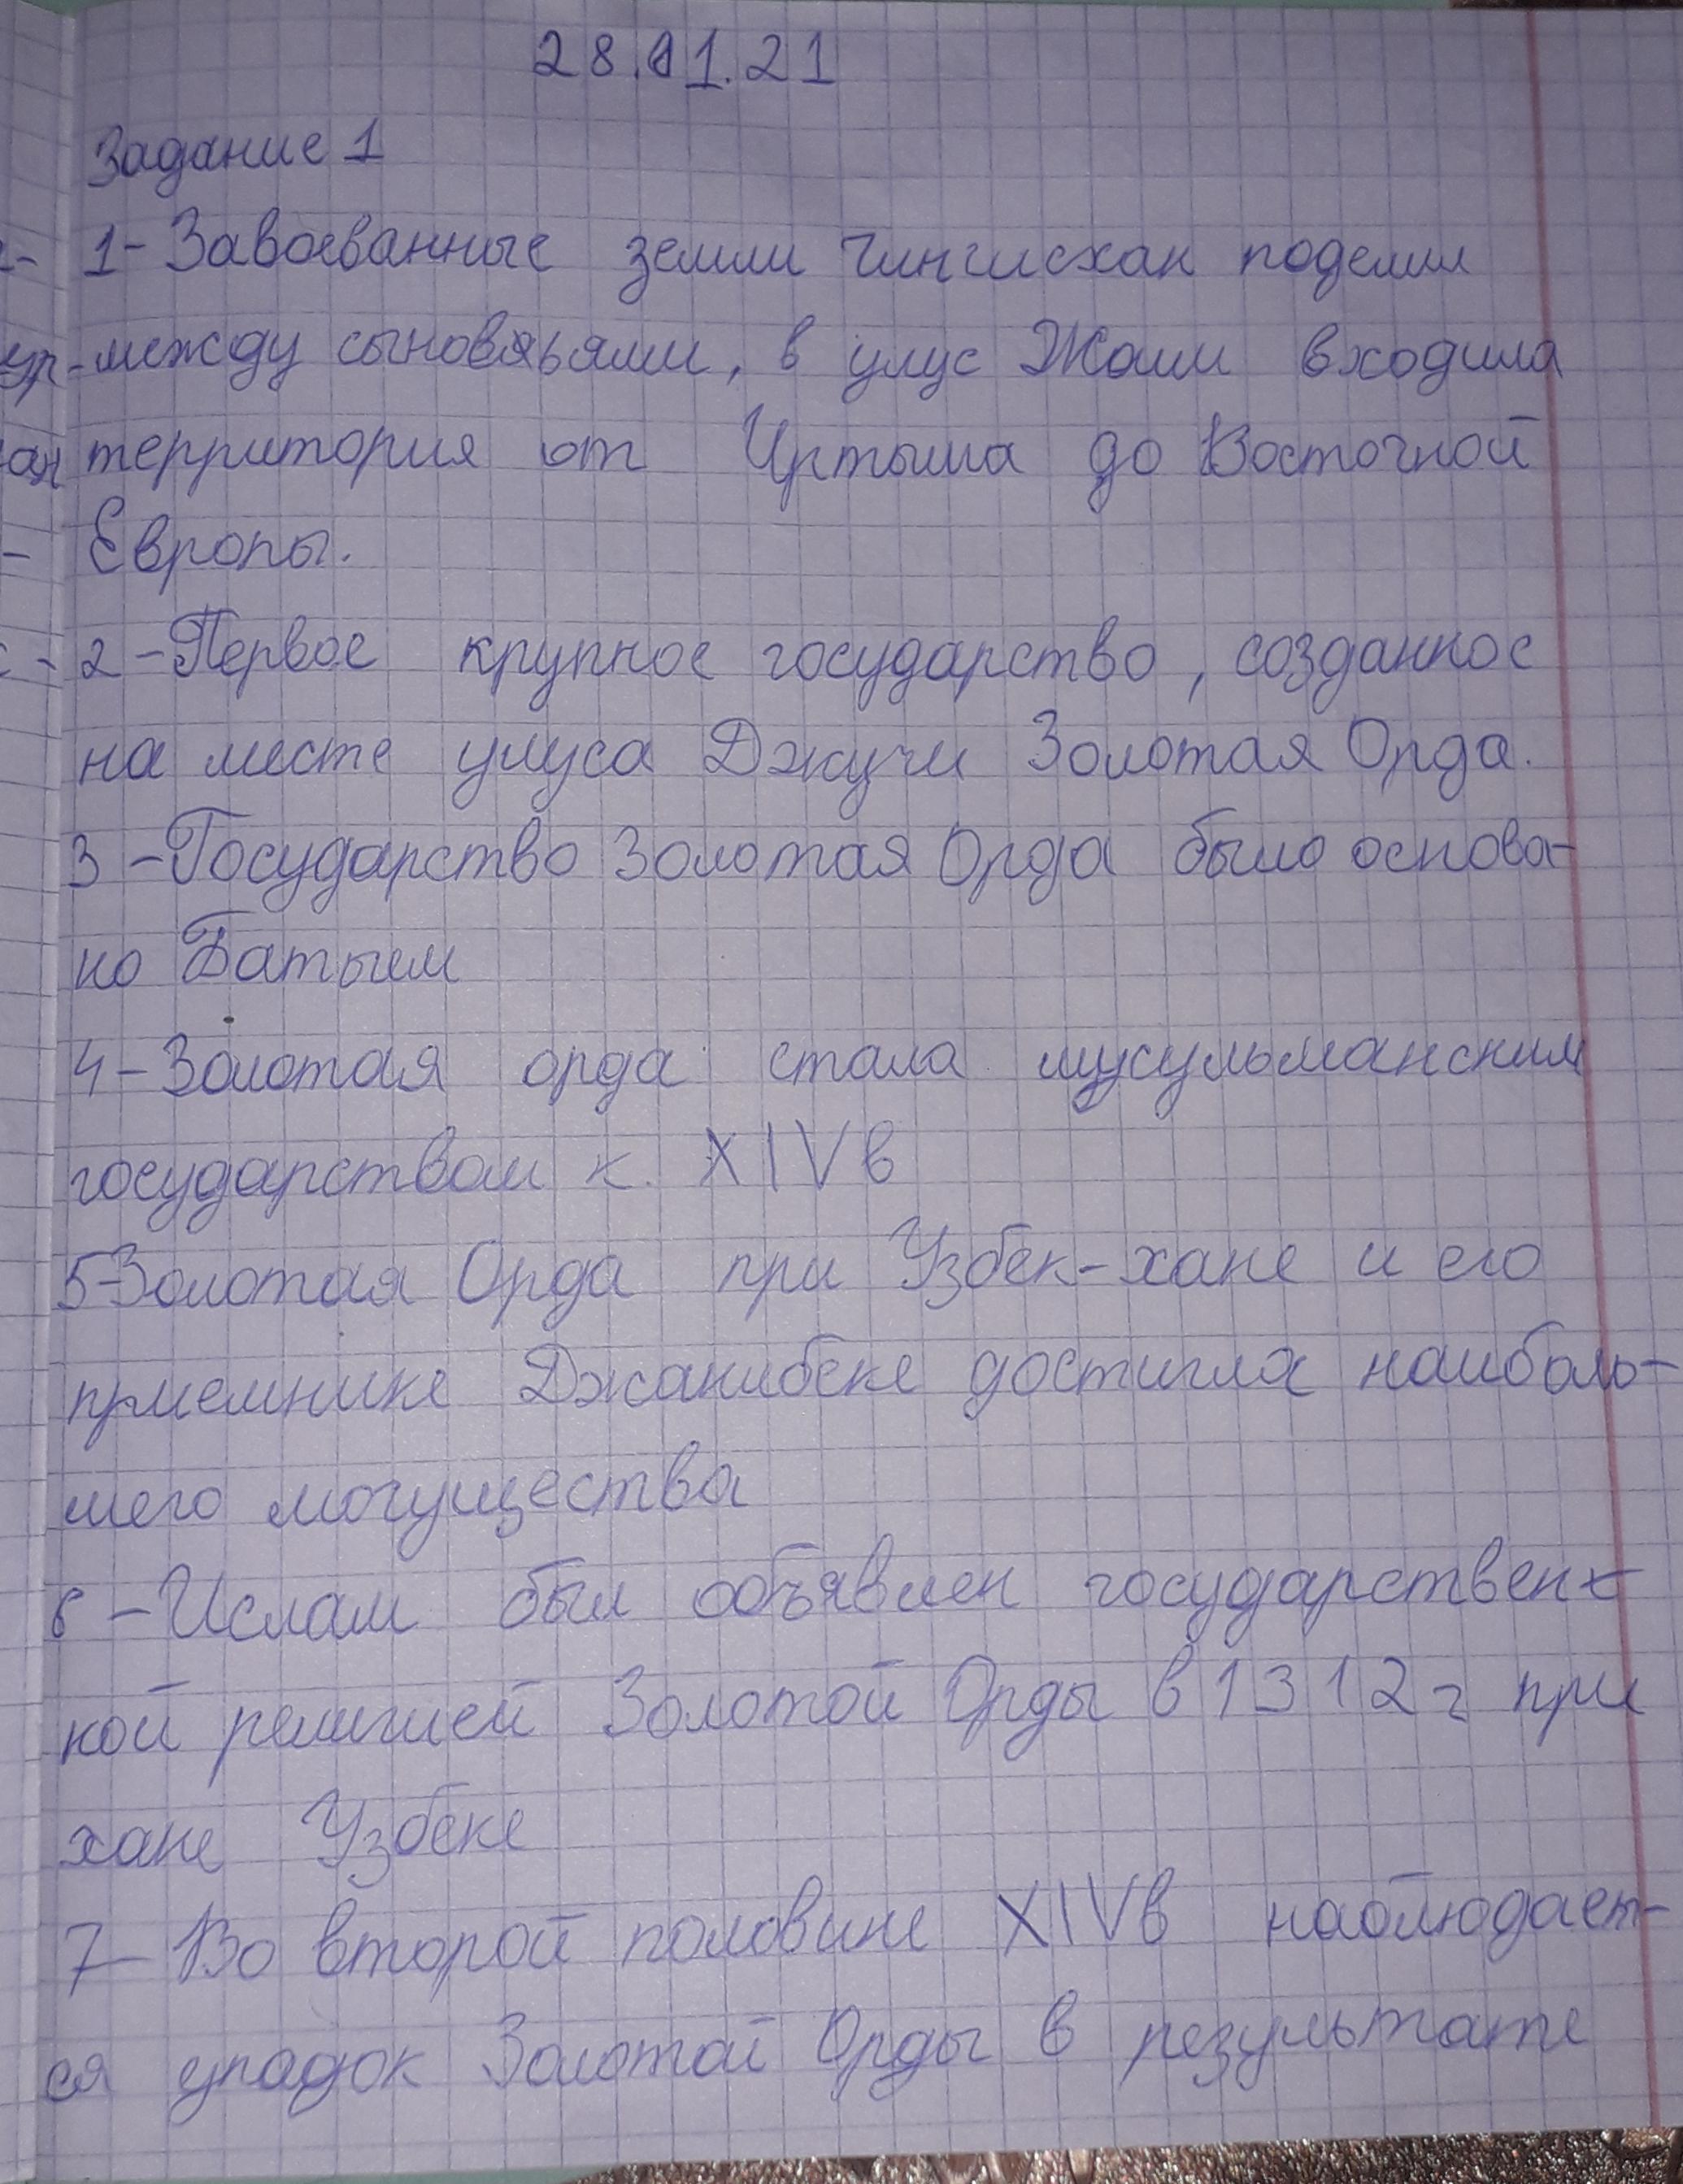 28.01.21
Задание 1
1- Завоеванные земли Чингисхан поделил
между сыновьями, в улус Жоши входила
территория от Иртыша до Восточной
Европы.
2-Первое крупное государство, созданное
на месте улуса Джучи Золотая Орда.
3-Государство Золотая Орда было основа-
но Батыем
4-Золотая орда стала мусульманским
государством к. XIVв
5-Золотая Орда при Узбек-хане и его
приемнике Джанибеке достигла наиболь-
шего могущества
6-Ислам был объявлен государствен-
ной религией Золотой Орды в 1312г при
хане Узбеке
7-Во второй половине XIVв наблюдает-
ся упадок Золотой Орды в результате